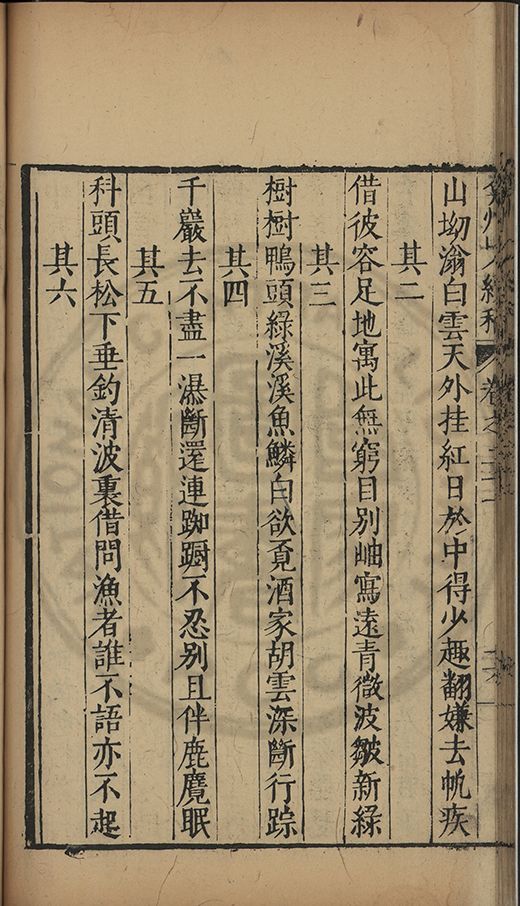 山坳滃白雲天外挂紅日於中得少趣翻嫌去帆疾
其二
借彼容足地寓此無窮目別岫寫遠青微波皺新綠
其三
樹樹鴨頭綠溪溪魚鱗白欲覔酒家胡雲深斷行踪
其四
千巖去不盡一瀑斷還連踟躕不忍別且伴鹿麑眠
其五
科頭長松下垂釣清波裏借問漁者誰不語亦不起
其六